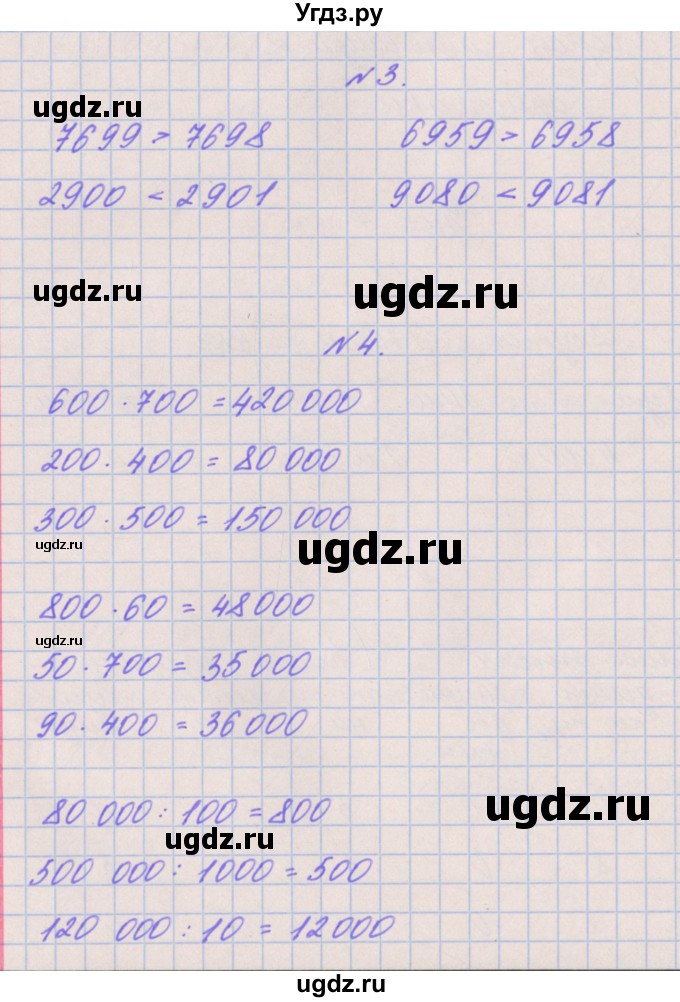 Угдз.ру
№3.
ugdz.ru
7699 > 7698 6959 > 6958
2900 < 2901 9080 < 9081
ugdz.ru ugdz.ru
№4.
600 · 700 = 420 000
200 · 400 = 80 000
300 · 500 = 150 000
ugdz.ru ugdz.ru
800 · 60 = 48000
ugdz.ru
50 · 700 = 35 000
90 · 400 = 36 000
ugdz.ru
80 000 : 100 = 800
ugdz.ru
500 000 : 1000 = 500
120 000 : 10 = 12000
ugdz.ru